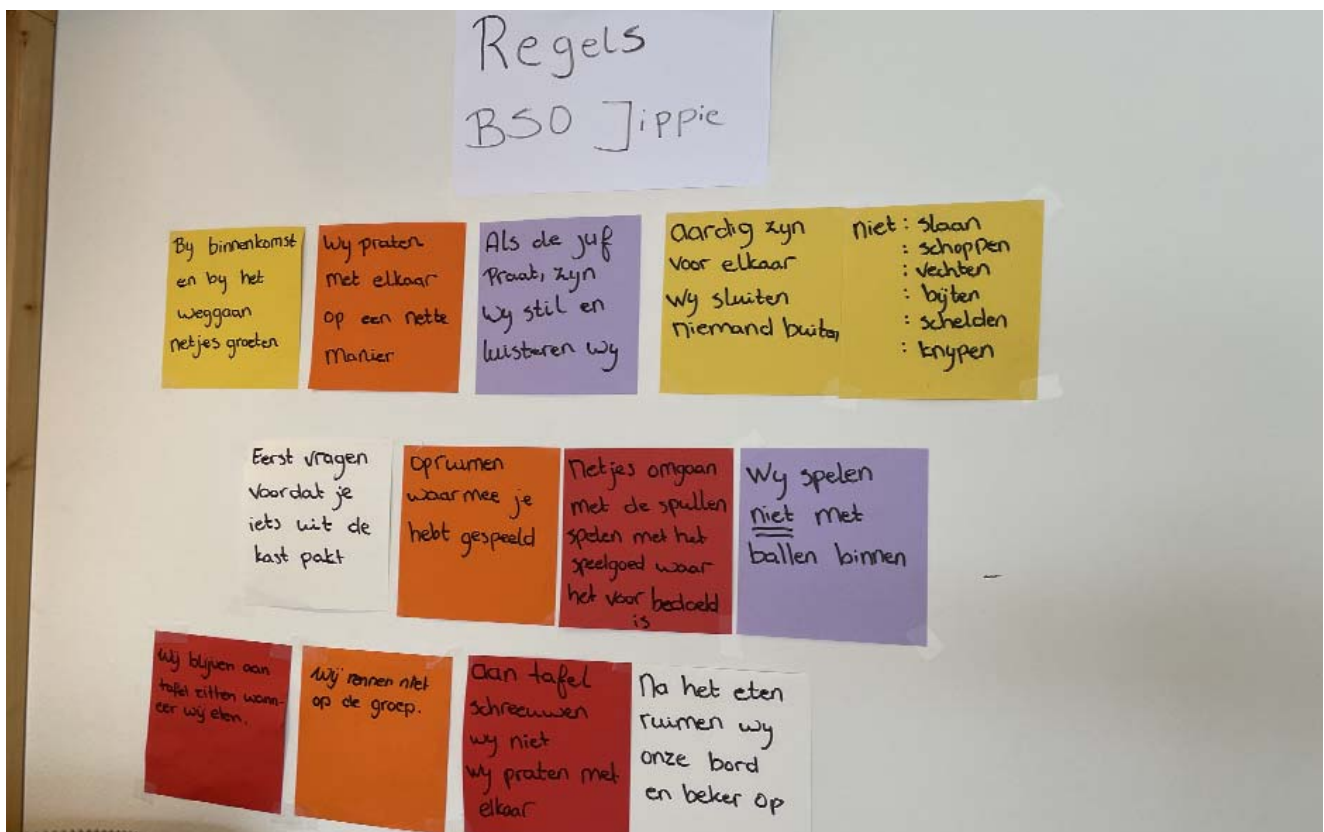 Regels
BSO Jippie
By binnenkomst
en by het
weggaan
netjes groeten
Wy praten
met elkaar
op een nette
manier
Als de juf
Praat, zyn
wy stil en
luisteren wy
aardig zyn
voor elkaar
wy sluiten
niemand buiten
niet : slaan
: schoppen
: vechten
: bijten
: schelden
: knypen
Eerst vragen
voordat je
iets uit de
kast pakt
opruimen
waarmee je
hebt gespeeld
Netjes omgaan
met de spullen
spelen met het
speelgoed waar
het voor bedoeld
is
Wy spelen
niet met
ballen binnen
Wij blijven aan
tafel zitten wann-
eer wij eten.
Wij rennen niet
op de groep.
aan tafel
schreeuwen
wy niet
wy praten met
elkaar
Na het eten
ruimen wy
onze bord
en beker op